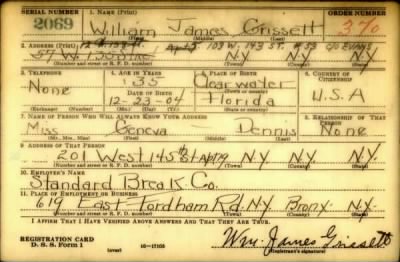 SERIAL NUMBER 1. NAME (Print) ORDER NUMBER
2069 William James Grissett 370
(First) (Middle) (Last)
2. ADDRESS (Print) Apt 5 103 W. 143 ST. #53 C/O EVANS
57 W. N.Y. N.Y.
(Number and street or R. F. D. number) (Town) (County) (State)
3. TELEPHONE 4. AGE IN YEARS 5. PLACE OF BIRTH 6. COUNTRY OF CITIZENSHIP
None 35 Clearwater
DATE OF BIRTH (Town or county)
12-23-04 Florida U.S.A
(Exchange) (Number) (Mo.) (Day) (Yr.) (State or country)
7. NAME OF PERSON WHO WILL ALWAYS KNOW YOUR ADDRESS 8. RELATIONSHIP OF THAT PERSON
Miss Geneva Dennis None
(Mr., Mrs., Miss) (First) (Middle) (Last)
9. ADDRESS OF THAT PERSON
201 West 145 St Apt 19 N.Y. N.Y. N.Y.
(Number and street or R. F. D. number) (Town) (County) (State)
10. EMPLOYER'S NAME
Standard Break Co.
11. PLACE OF EMPLOYMENT OR BUSINESS
619 East Fordham Rd. N.Y. Bronx N.Y.
(Number and street or R. F. D. number) (Town) (County) (State)
I AFFIRM THAT I HAVE VERIFIED ABOVE ANSWERS AND THAT THEY ARE TRUE.
REGISTRATION CARD
D. S. S. Form 1 (over) 16-17105 Wm. James Grissett
(Registrant's signature)